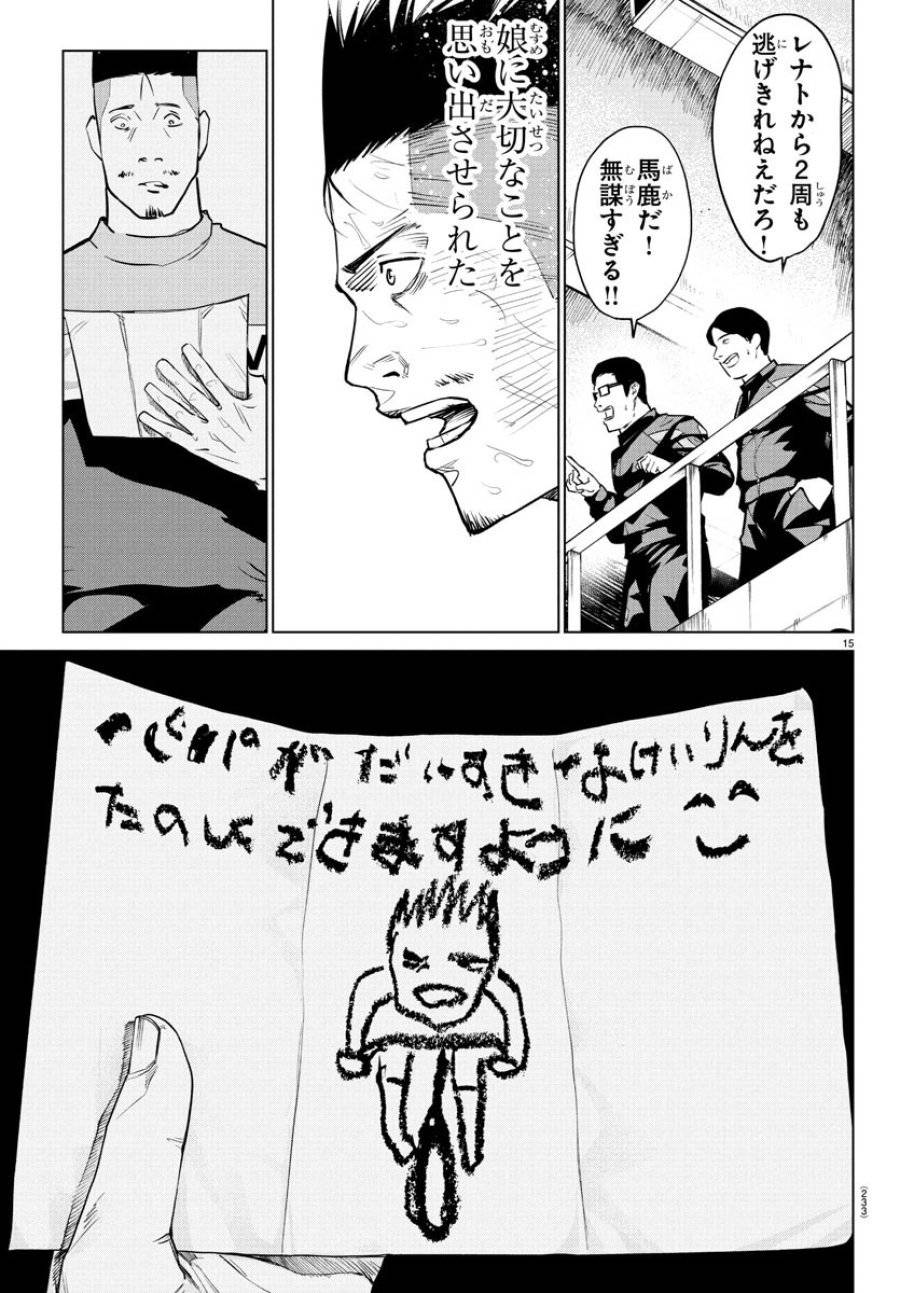 レナトから2周も
逃げきれねえだろ！
馬鹿だ！
無謀すぎる!!
娘に大切なことを
思い出させられた
15
パパがだいすきなけいりんを
たのしくできますように
(233)